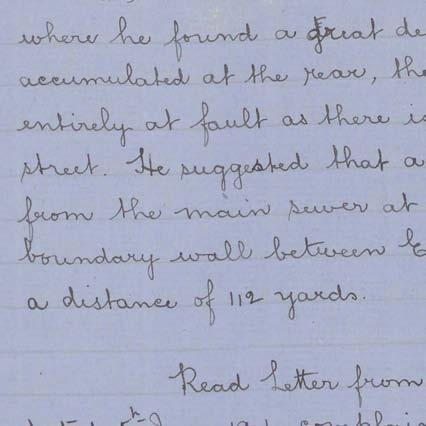 where he found a great de
accumulated at the rear, the
entirely at fault as there is
street. He suggested that a
from the main sewer at
boundary wall between E
a distance of 112 yards.
Read Letter from
complai